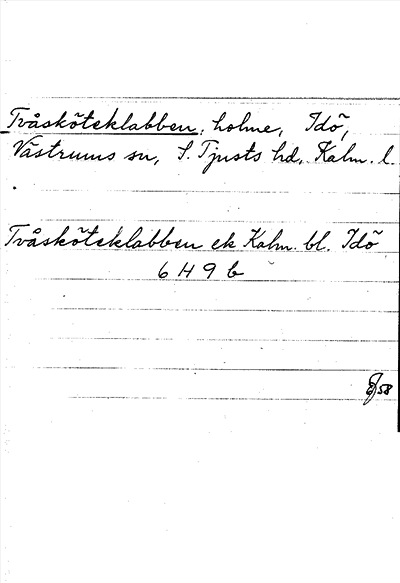 Tvåsköteklabben, holme, Idö,
Västrums sn, S. Tjusts hd, Kalm. l.
Tvåsköteklabben ek Kalm. bl. Idö
6 H 9 b
58